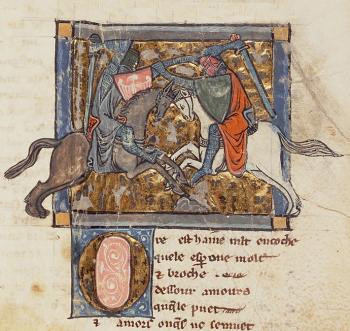 Ore est haine mlt en coche
quele esperone molt
& broche
dessour amours
quele puet
& amors onq̃s ne semuet